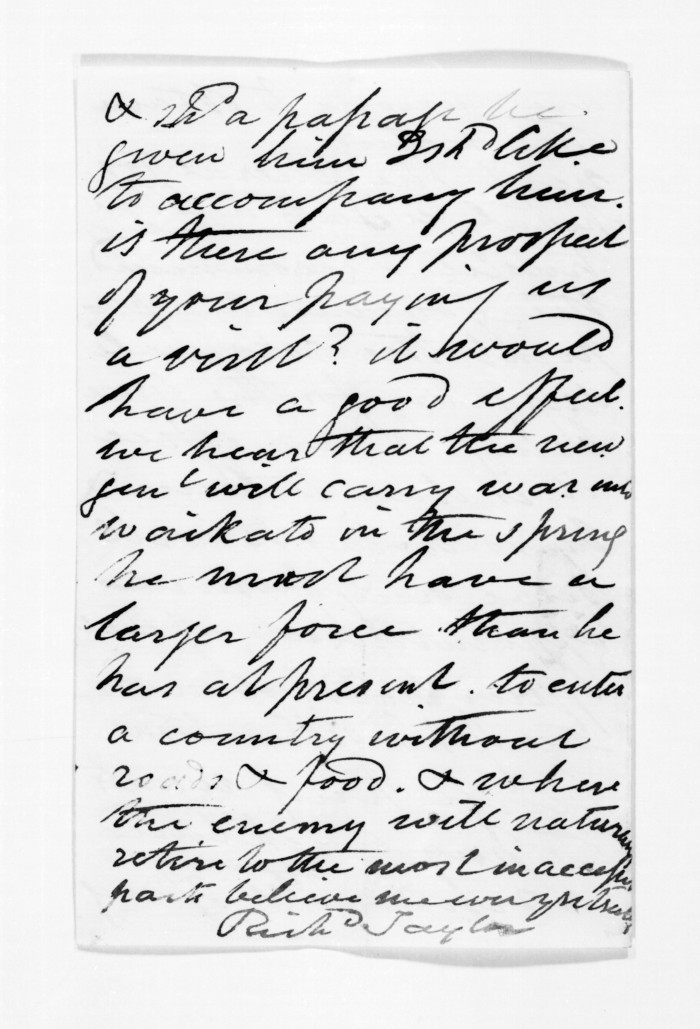 & shd a passage be
given him I shd like
to accompany him.
is there any prospect
of your paying us
a visit? it would
have a good effect.
we hear that the new
genl will carry war into
Waikato in the spring
he must have a
larger force than he
has at present. to enter
a country without
roads & food. & where
the enemy will naturally
retire to the most inaccessible
parts believe me very
Richd Taylor